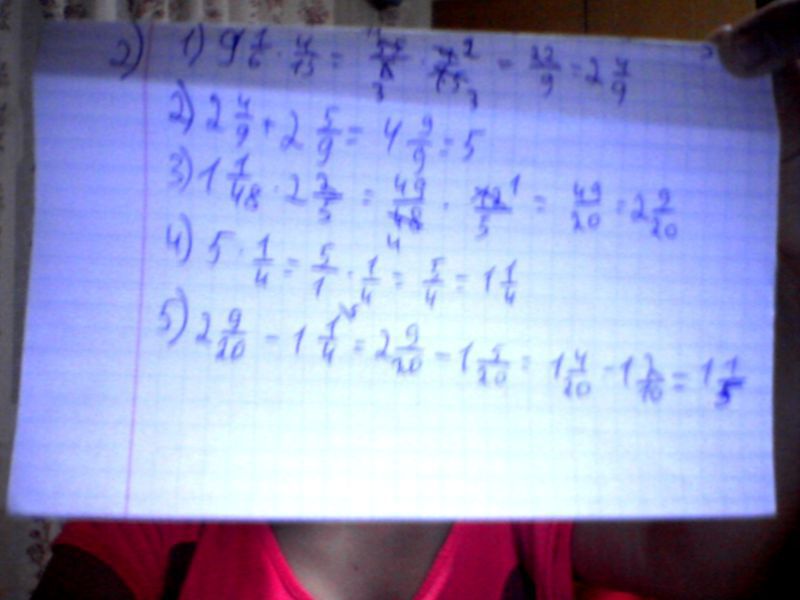 2) 1) 9 1/6 · 4/15 = 55/6 · 4/15 = 22/9 = 2 4/9
2) 2 4/9 + 2 5/9 = 4 9/9 = 5
3) 1 1/48 · 2 2/5 = 49/48 · 12/5 = 49/20 = 2 9/20
4) 5 · 1/4 = 5/1 · 1/4 = 5/4 = 1 1/4
5) 2 9/20 - 1 1/4 = 2 9/20 - 1 5/20 = 1 4/20 - 1 2/10 = 1 1/5